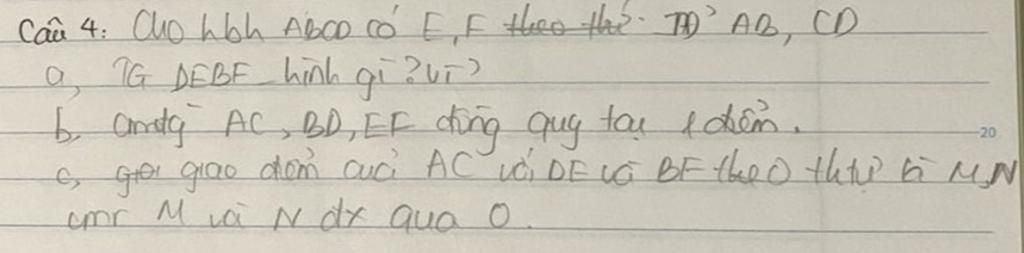 Câu 4: Cho hbh ABCD có E, F theo thứ. TĐ AB, CD
a, TG DEBF hình gì? Vì?
b, cmđg AC, BD, EF đồng quy tại 1 điểm.
c, gọi giao điểm của AC với DE và BF theo thứ tự là M, N
cmr M và N đx qua O.
20